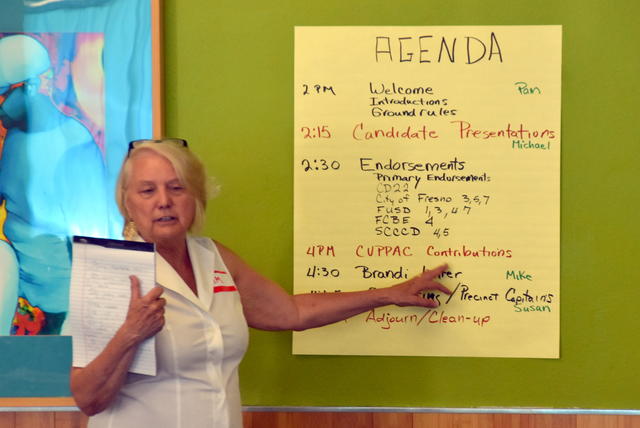 AGENDA
2 PM Welcome Pam
Introductions
Ground rules
2:15 Candidate Presentations
Michael
2:30 Endorsements
Primary Endorsements
CD22
City of Fresno 3,5,7
FUSD 1,3,4,7
FCBE 4
SCCCD 4,5
4PM CVPPAC Contributions
4:30 Brandi Mike
/Precinct Captains
Susan
Adjourn/Clean-up